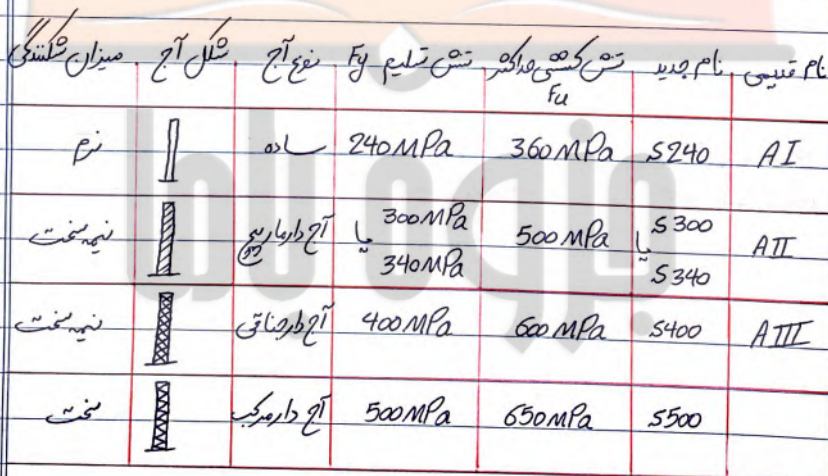 نام قدیمی نام جدید تنش کششی حداکثر Fu تنش تسلیم Fy نوع آج شکل آج میزان شکنندگی
AI S240 360MPa 240MPa ساده نرم
AII S300 یا S340 500MPa 300MPa یا 340MPa آج دار مارپیچ نیمه سخت
AIII S400 600MPa 400MPa آج دار جناقی نیمه سخت
S500 650MPa 500MPa آج دار مرکب سخت
جزوه باما